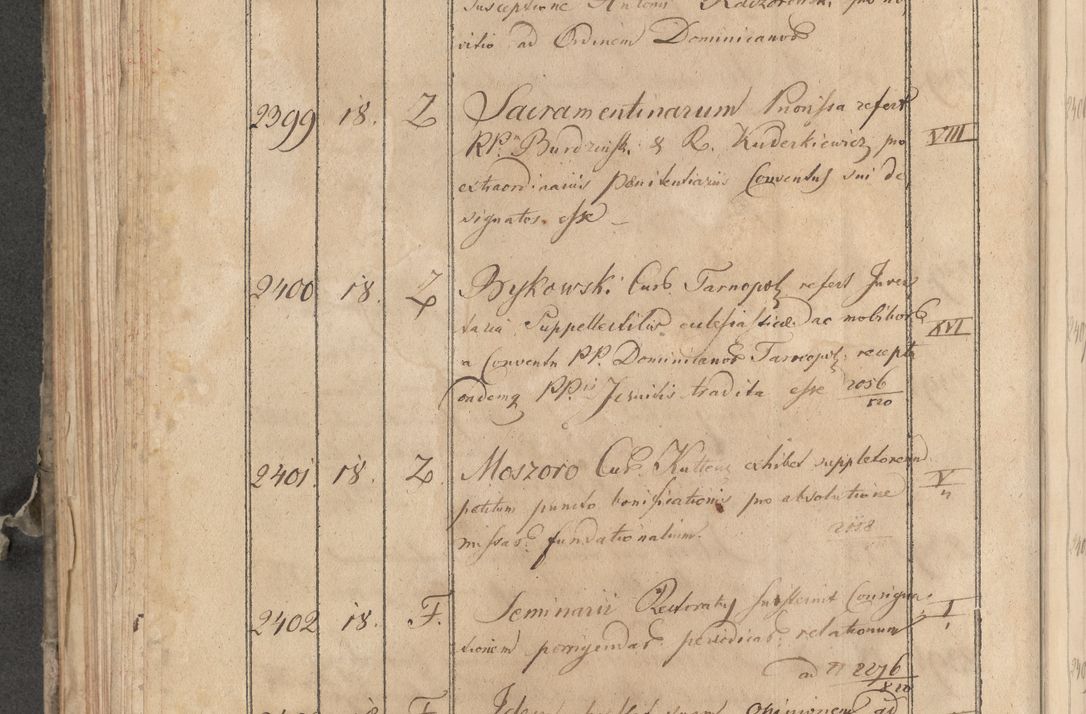 susceptione Antonii pro no
vitio ad Ordinem Dominicanor
2399 18. Z Sacramentinarum Priorissa refert
RP. Burdzinski & R. Kuderkiewicz pro VIII
extraordinariis Poenitentiariis Conventus sui de
signatos esse –
2400 18. Z Bykowski Cur. Tarnopol refert Inven
taria Suppellectilis ecclesiasticae ac mobilior XVI
a Conventu PP. Dominicanor Tarnopol: recepta
eademq PP.is Jesuitis tradita esse 2056/520
2401 18. Z. Moszoro Cur. Kutten exhibet suppletorem V/4
petitum puncto bonificationis pro absolutione
missar. fundationalium. 2118
2402 18. F. Seminarii Rectoratus substernit Consigna I/1
tionem porrigendar periodicar. relationum
ad N 2276/820
F Idem opinionem ad